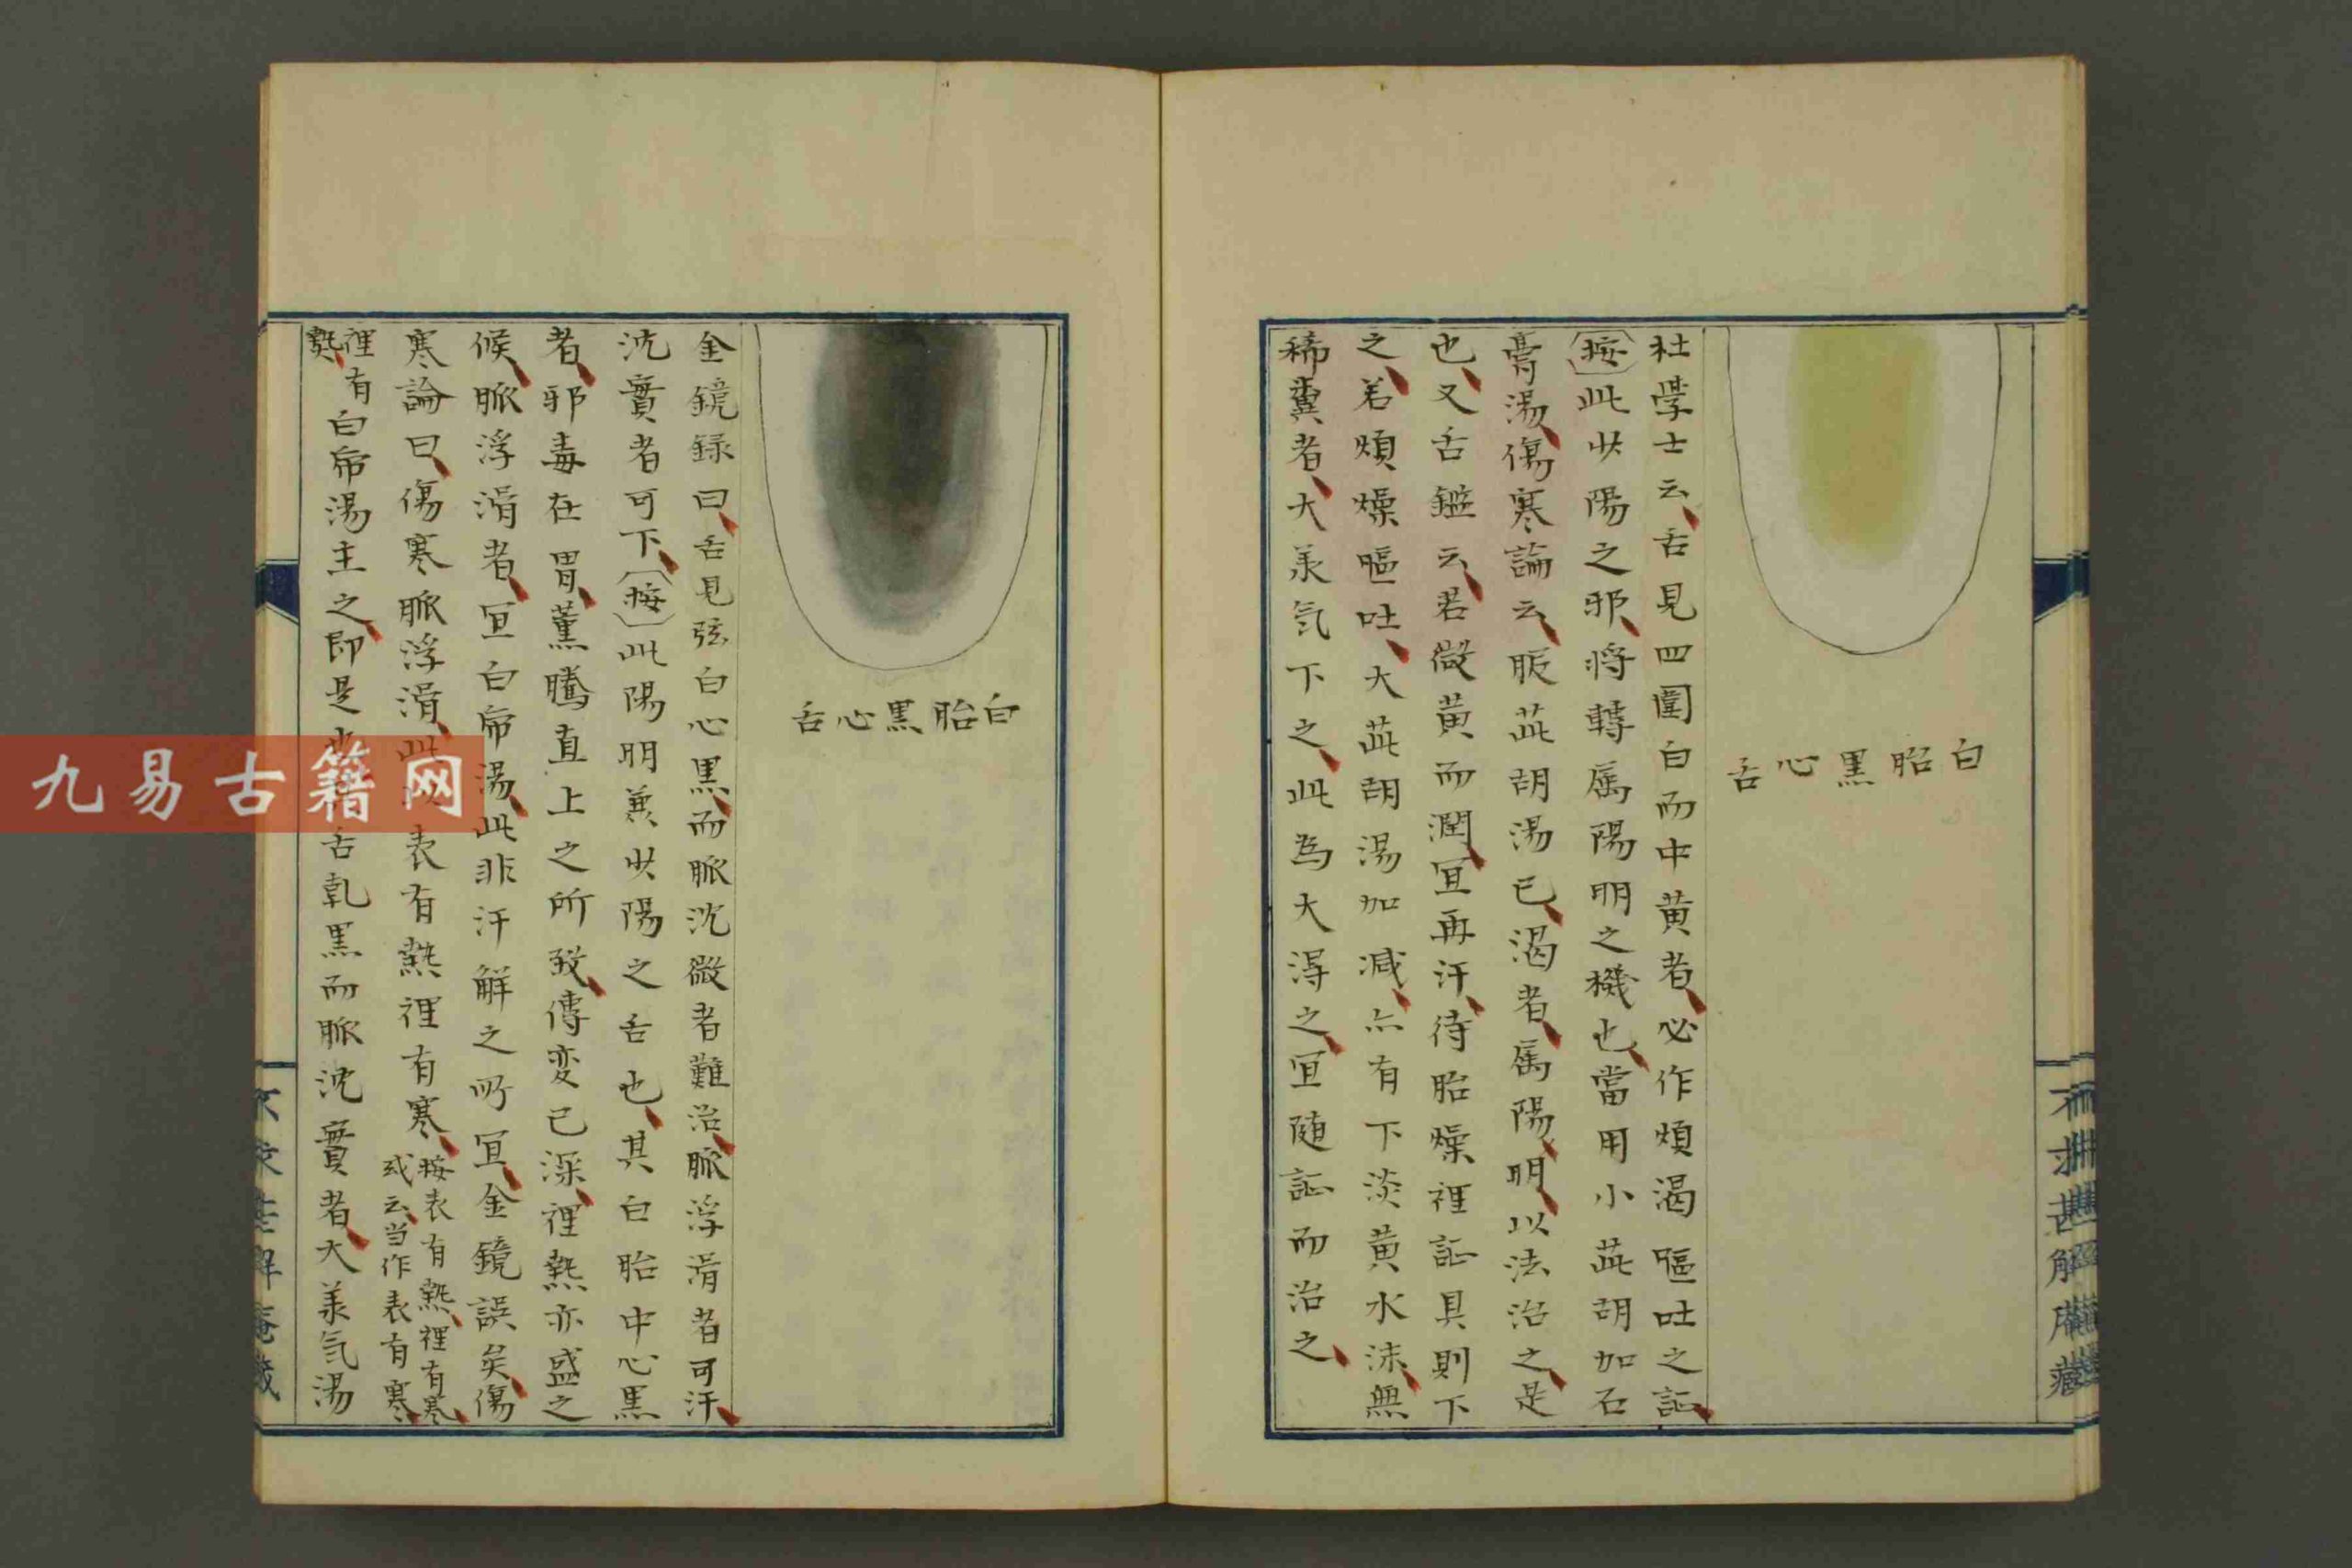 白胎黑心舌
杜學士云舌見四圍白而中黃者必作煩渴嘔吐之証
按此少陽之邪將轉属陽明之機也當用小茈胡加石
膏湯傷寒論云服茈胡湯已渴者属陽明以法治之是
也又舌鑑云若微黃而潤冝再汗待胎燥裡証具則下
之若煩燥嘔吐大茈胡湯加减亦有下淡黄水沫無
稀糞者大承气下之此為大淂之冝随証而治之
白胎黑心舌
金鏡録曰舌見弦白心黒而脈沈微者難治脈浮滑者可汗
沈實者可下按此陽明兼少陽之舌也其白胎中心黒
者邪毒在胃薫騰直上之所致傳変已深裡熱亦盛之
候脈浮滑者冝白帍湯此非汗觧之所冝金鏡誤矣傷
寒論曰傷寒脈浮滑此表有熱裡有寒
按表有熱裡有寒
或云当作表有寒
裡有
熱
白帍湯主之即是也舌乾黒而脈沈實者大承气湯
不求甚解庵藏
九易古籍网